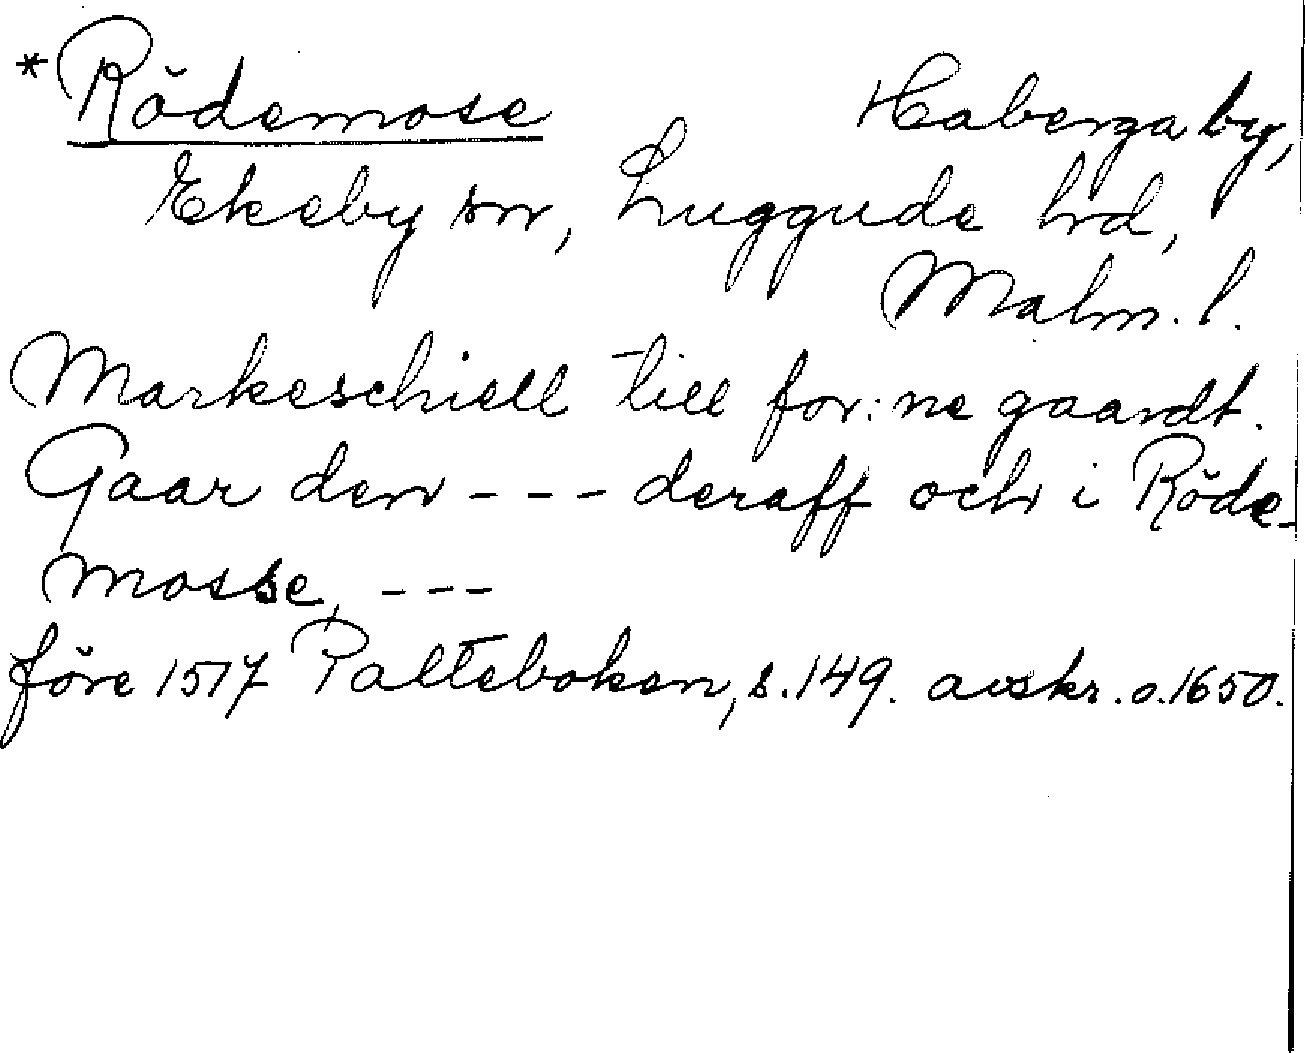 *Rödemose Haberga by,
Ekeby sn, Luggude hd,
Malm. l.
Markeschiell till for:ne gaardt.
Gaar den --- deraff och i Röde-
mosse, ---
före 1517 Palteboken, s.149. avskr.o.1650.